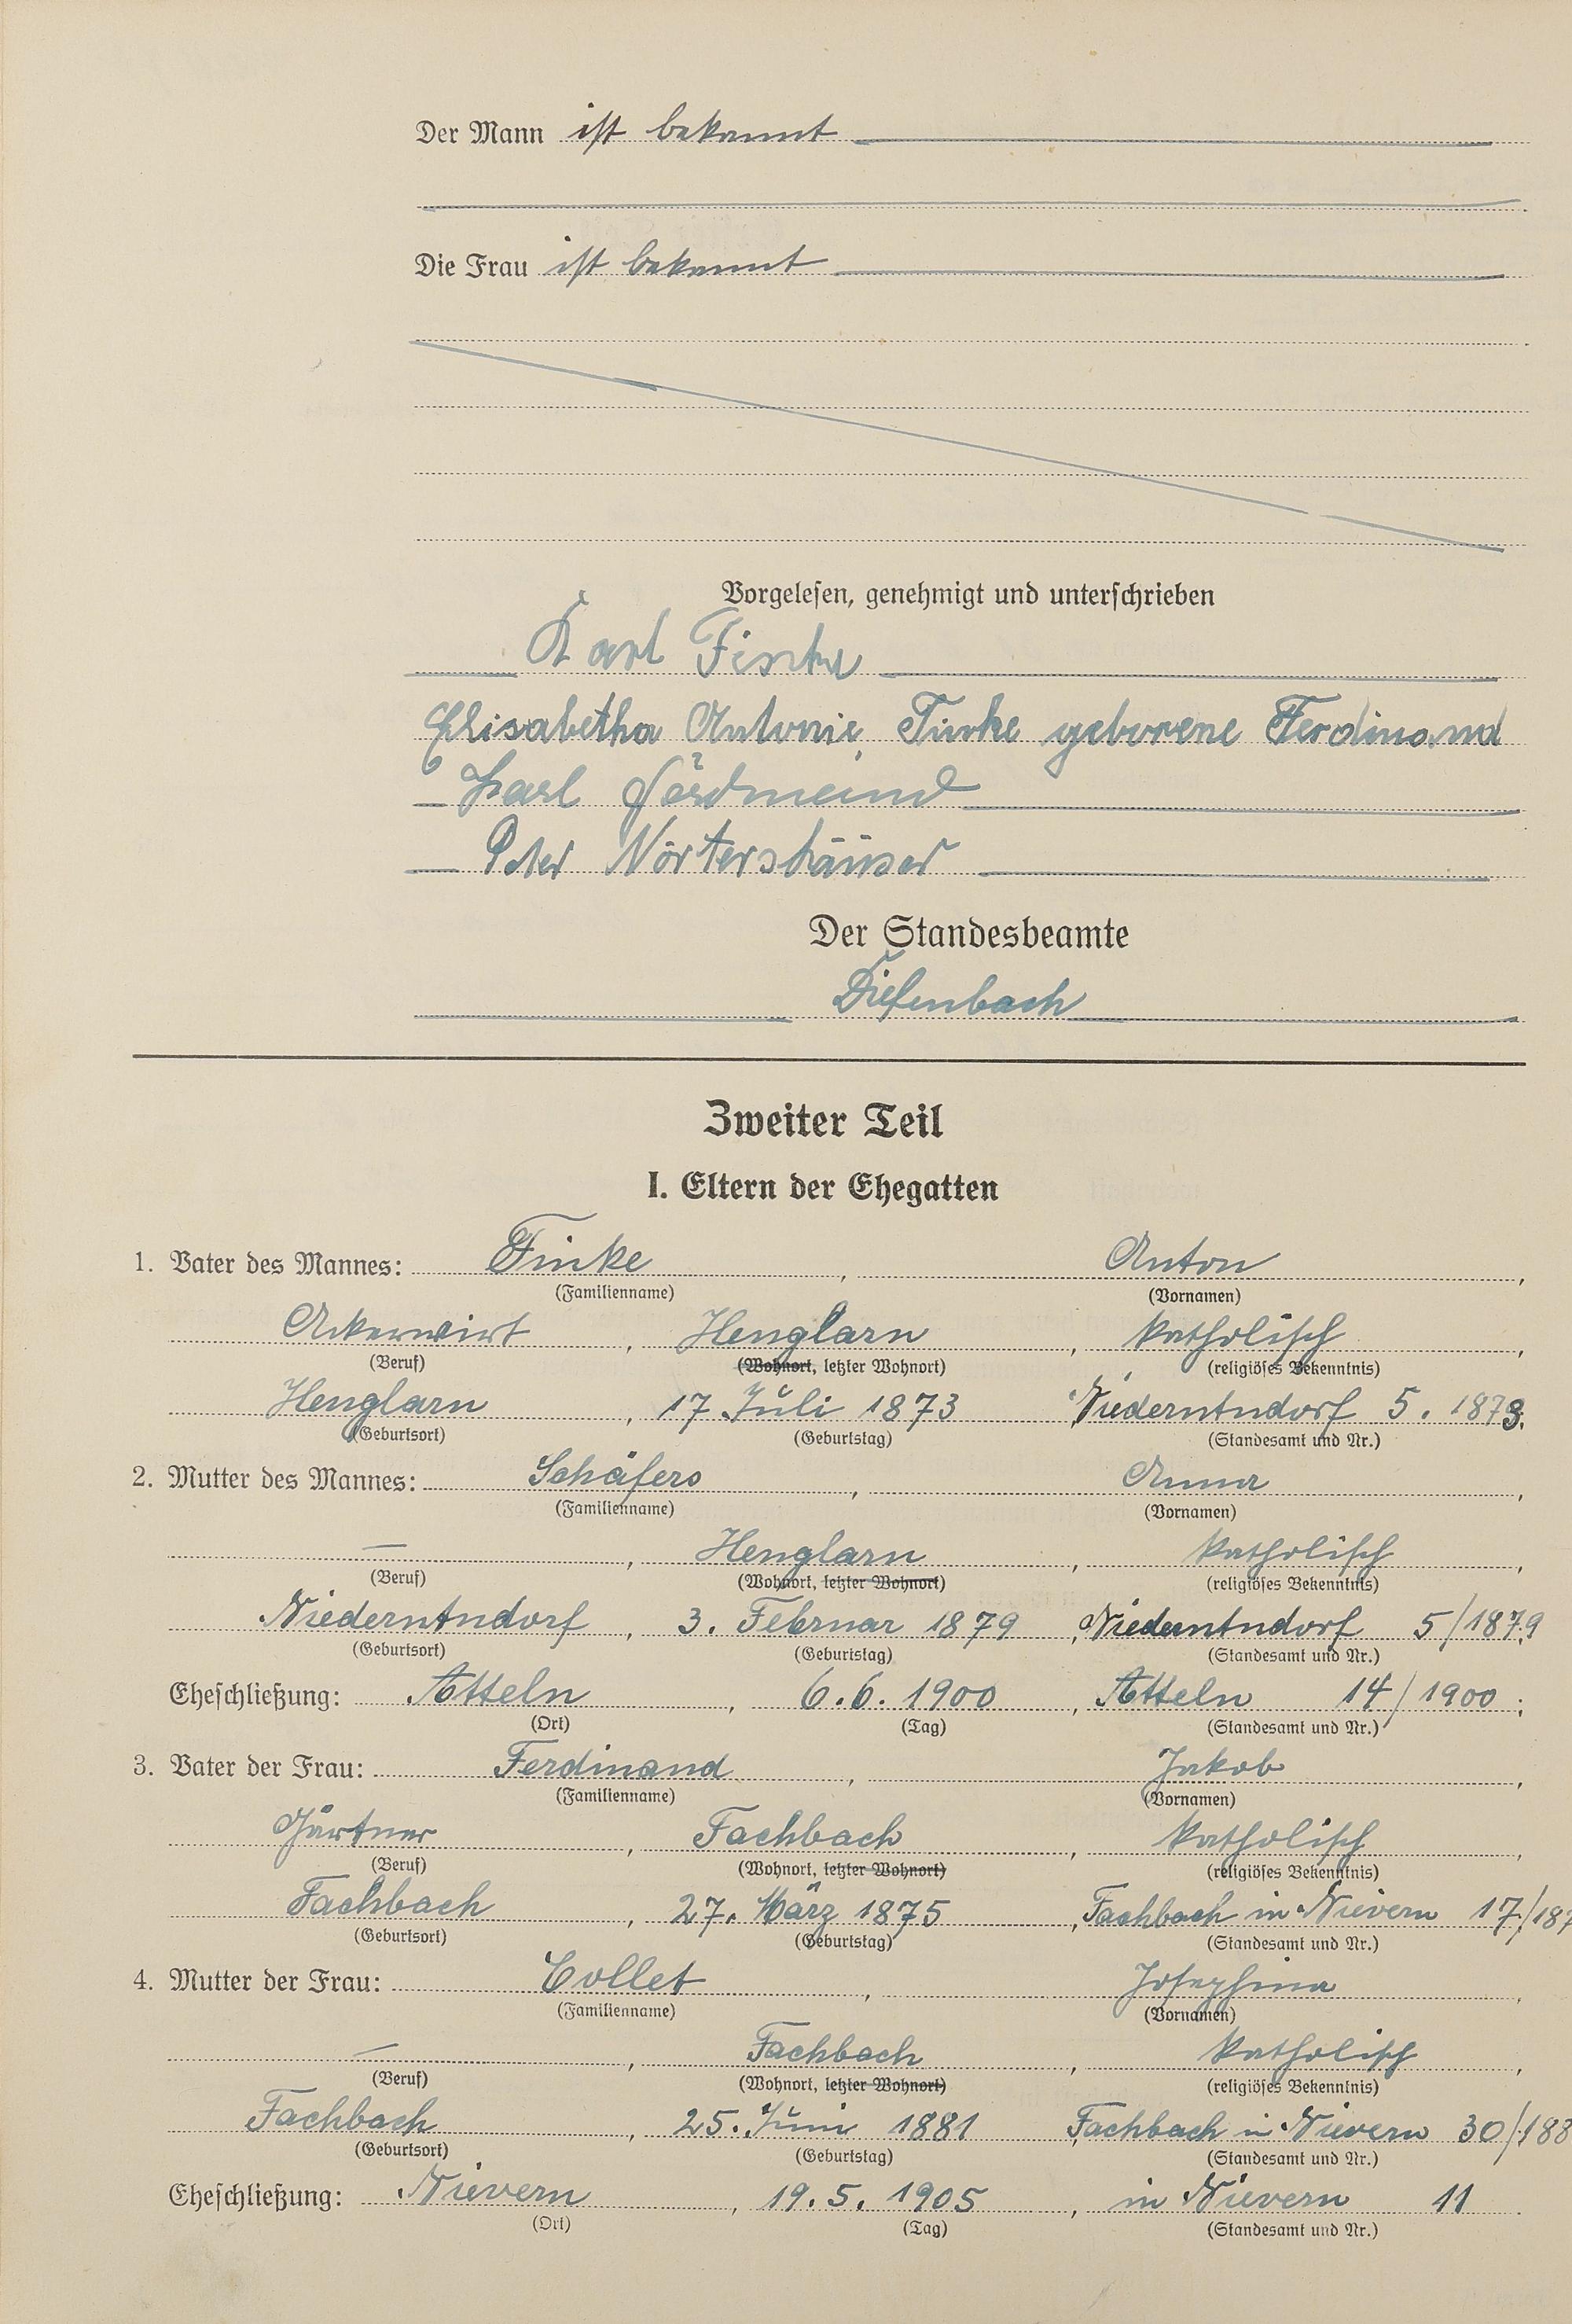 Der Mann ist bekannt
Die Frau ist bekannt
Vorgelesen, genehmigt und unterschrieben
Karl Finke
Elisabetha Antonie Finke geborene Ferdinand
Karl
Peter Nörtershäuser
Der Standesbeamte
Diefenbach
Zweiter Teil
I. Eltern der Ehegatten
1. Vater des Mannes: Finke, Anton,
(Familienname) (Vornamen)
Ackerwirt, Henglarn, katholisch,
(Beruf) (Wohnort, letzter Wohnort) (religiöses Bekenntnis)
Henglarn, 17. Juli 1873 Niederntndorf 5. 1873.
(Geburtsort) (Geburtstag) (Standesamt und Nr.)
2. Mutter des Mannes: Schäfers, Anna,
(Familienname) (Vornamen)
—, Henglarn, katholisch,
(Beruf) (Wohnort, letzter Wohnort) (religiöses Bekenntnis)
Niederntndorf, 3. Februar 1879, Niederntndorf 5/1879
(Geburtsort) (Geburtstag) (Standesamt und Nr.)
Eheschließung: Atteln, 6.6.1900, Atteln 14/1900;
(Ort) (Tag) (Standesamt und Nr.)
3. Vater der Frau: Ferdinand, Jakob,
(Familienname) (Vornamen)
Gärtner, Fachbach, katholisch,
(Beruf) (Wohnort, letzter Wohnort) (religiöses Bekenntnis)
Fachbach, 27. März 1875, Fachbach in Nievern 17/187
(Geburtsort) (Geburtstag) (Standesamt und Nr.)
4. Mutter der Frau: Collet, Josephina,
(Familienname) (Vornamen)
—, Fachbach, katholisch,
(Beruf) (Wohnort, letzter Wohnort) (religiöses Bekenntnis)
Fachbach, 25. Juni 1881, Fachbach in Nievern 30/188
(Geburtsort) (Geburtstag) (Standesamt und Nr.)
Eheschließung: Nievern, 19.5.1905, in Nievern 11
(Ort) (Tag) (Standesamt und Nr.)